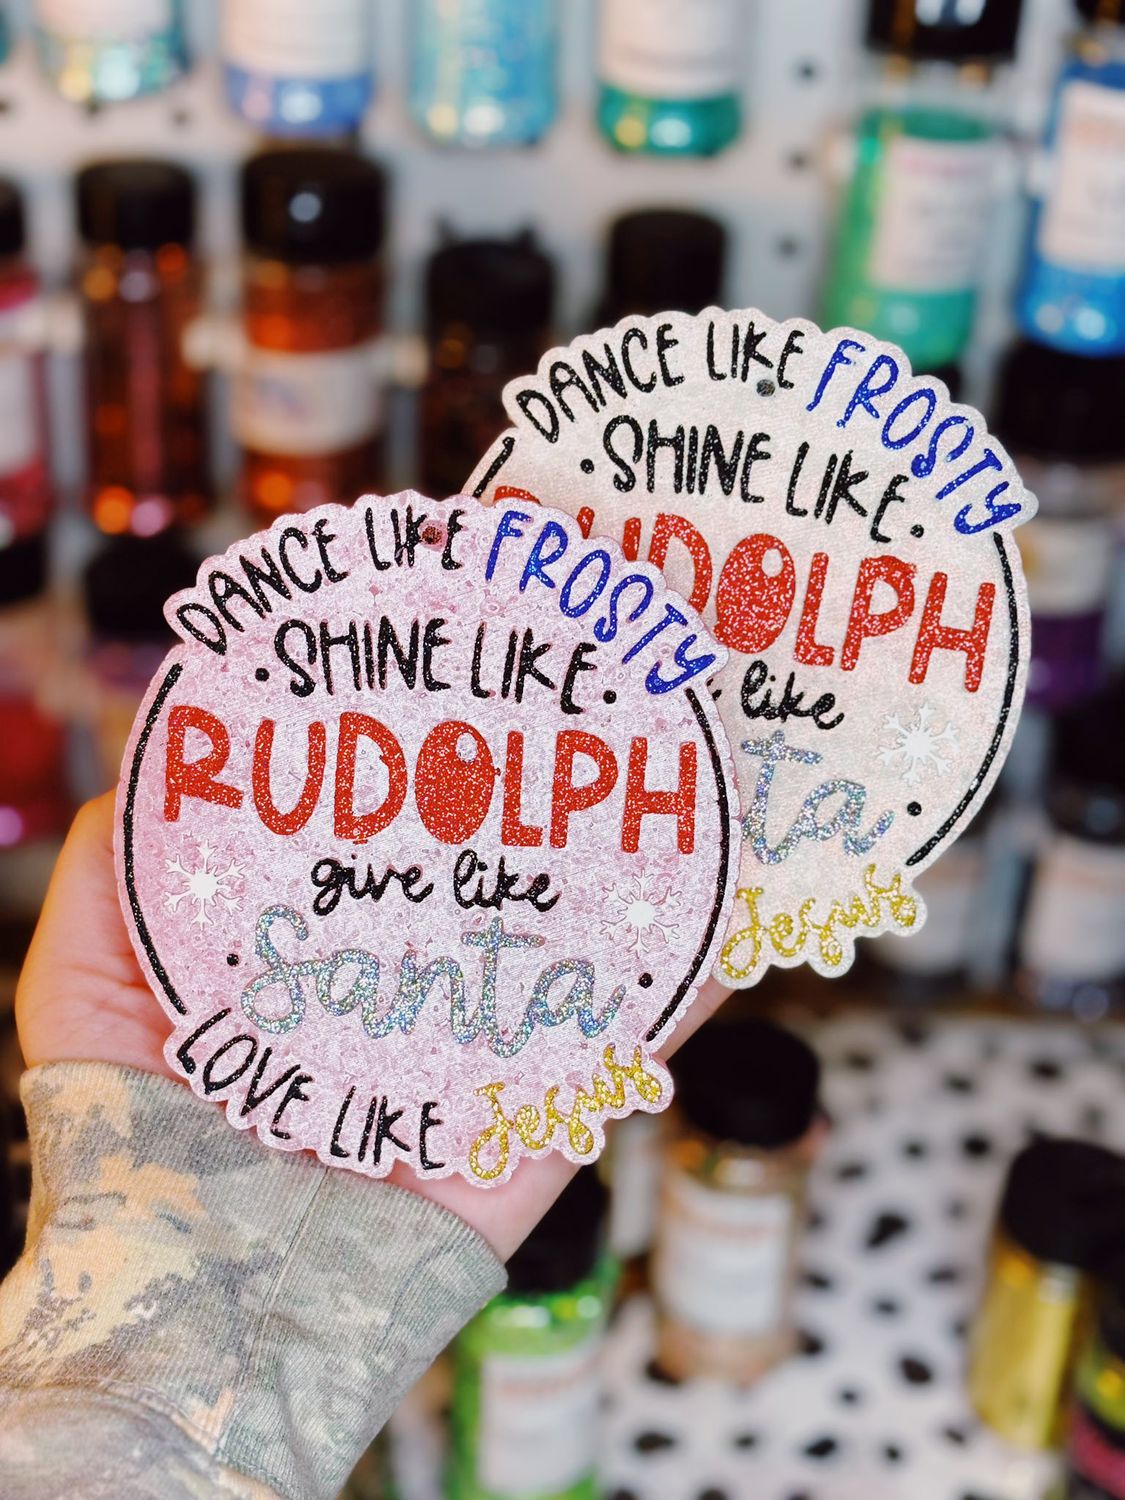 DANCE LIKE FROSTY
• SHINE LIKE •
RUDOLPH
give like
Santa
LOVE LIKE Jesus
DANCE LIKE FROSTY
• SHINE LIKE •
RUDOLPH
like
ta
Jesus